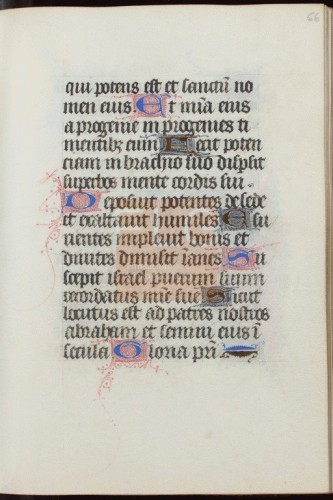 66
qui potens est et sanctū no
men eius. Et mīa eius
a progenie in progenies ti
mentibꝫ eum Fecit poten
ciam in brachio suo dispsit
superbos mente cordis sui.
Deposuit potentes de sede
et exaltauit humiles Esu
rientes impleuit bonis et
diuites dimisit īanes Su
scepit israel puerum suum
recordatus mīe sue Sicut
locutus est ad patres nostros
abraham et semini eius ī
secula Gloria pri